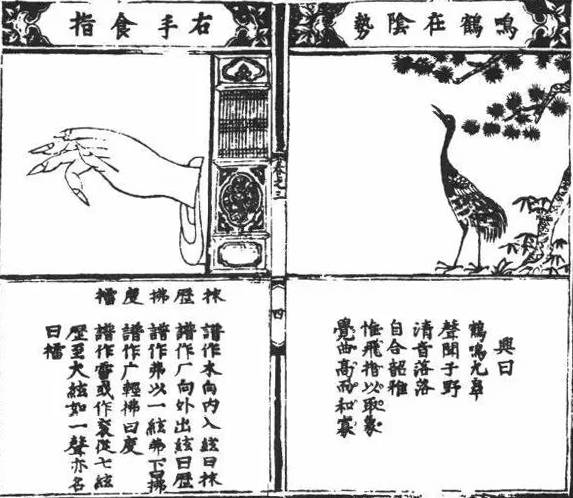 鳴鶴在陰勢
興曰
鶴鳴九皐
聲聞于野
清音落落
自合韶雅
惟飛指以取象
覺曲高而和寡
四
右手食指
抹
歷
拂
度
擂
譜作木向内入絃曰抹
譜作厂向外出絃曰歷
譜作弗以一絃弗下曰拂
譜作广輕拂曰度
譜作雷或作從七絃
歷至大絃如一聲亦名
曰擂